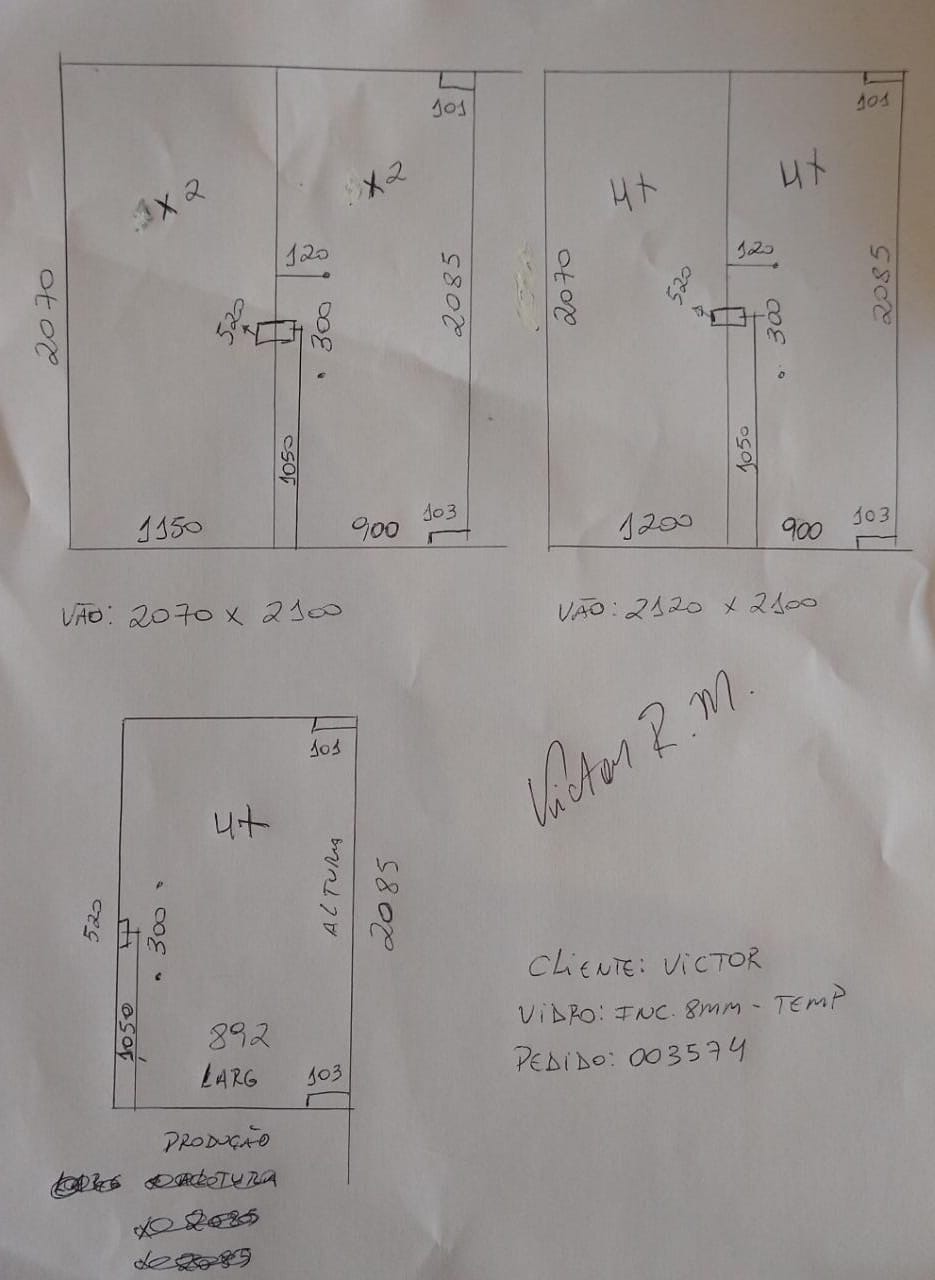 101
x2
x2
120
2070
520
300
2085
1050
1150
900
103
VÃO: 2070 x 2100
101
4x
4x
120
2070
520
300
2085
1050
1200
900
103
VÃO: 2120 x 2100
Victor R. M.
101
4x
ALTURA
2085
520
300
1050
892
LARG
103
PRODUÇÃO
CLIENTE: VICTOR
VIDRO: INC. 8mm - TEMP
PEDIDO: 003574